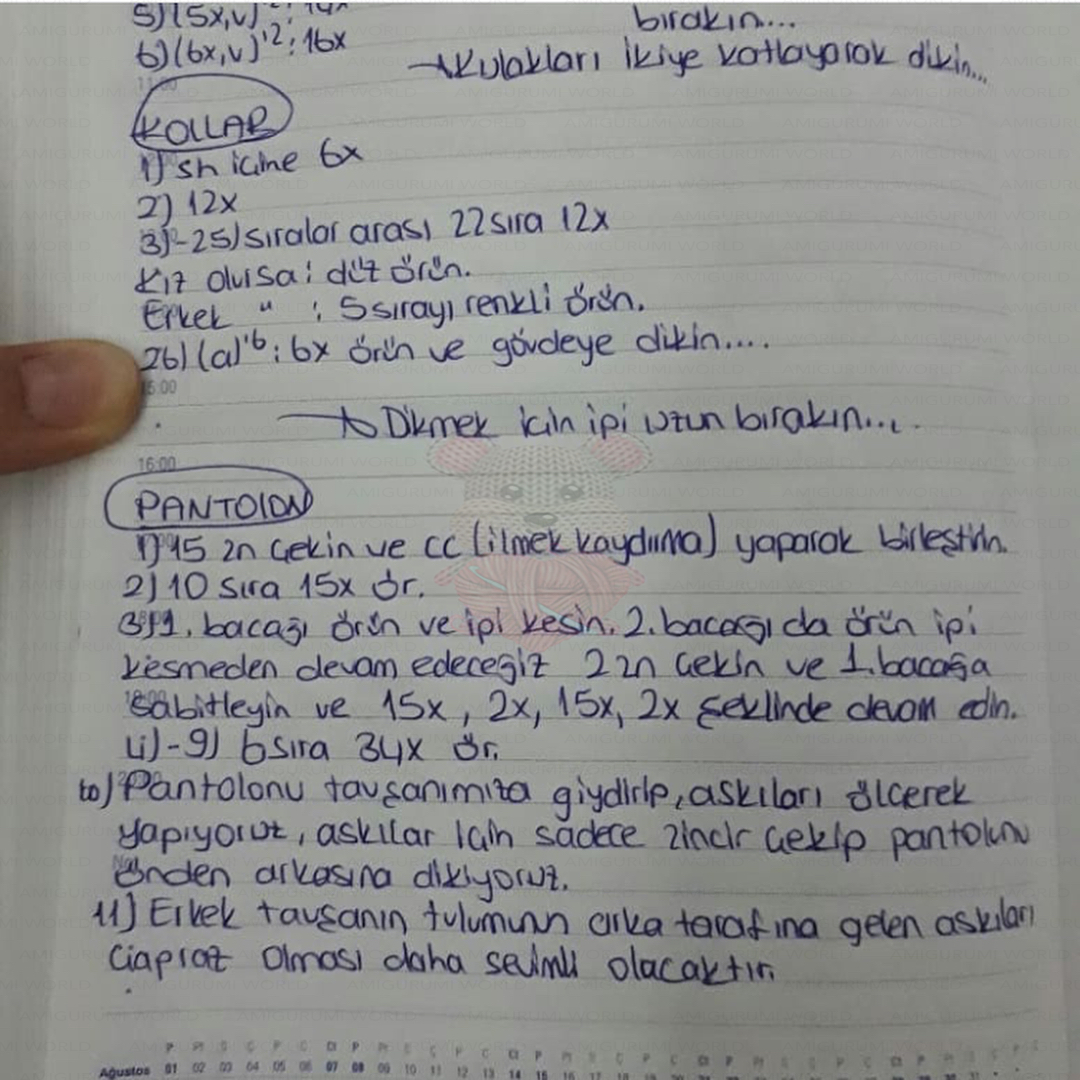 5) (5x,v)'2: 14x
bırakın...
6) (6x,v)'2: 16x
→Kulakları ikiye katlayarak dikin...
11:00
KOLLAR
1) sh içine 6x
2) 12x
3)-25) sıralar arası 22 sıra 12x
Kız olursa: düz örün.
Erkek " : 5 sırayı renkli örün.
26) (a)'6: 6x örün ve gövdeye dikin....
15:00
→ Dikmek için ipi uzun bırakın...
16:00
PANTOLON
1) 15 zn çekin ve cc (ilmek kaydırma) yaparak birleştirin.
2) 10 sıra 15x ör.
3) 1. bacağı örün ve ipi kesin. 2. bacağı da örün ipi
kesmeden devam edeceğiz 2 zn çekin ve 1. bacağa
sabitleyin ve 15x, 2x, 15x, 2x şeklinde devam edin.
4)-9) 6 sıra 34x ör.
10) Pantolonu tavşanımıza giydirip, askıları ölçerek
yapıyoruz, askılar için sadece zincir çekip pantolonu
önden arkasına dikiyoruz.
11) Erkek tavşanın tulumunun arka tarafına gelen askıları
çapraz olması daha sevimli olacaktır.
Ağustos 01 02 03 04 05 06 07 08 09 10 11 12 13 14 15 16 17 18 19 20 21 22